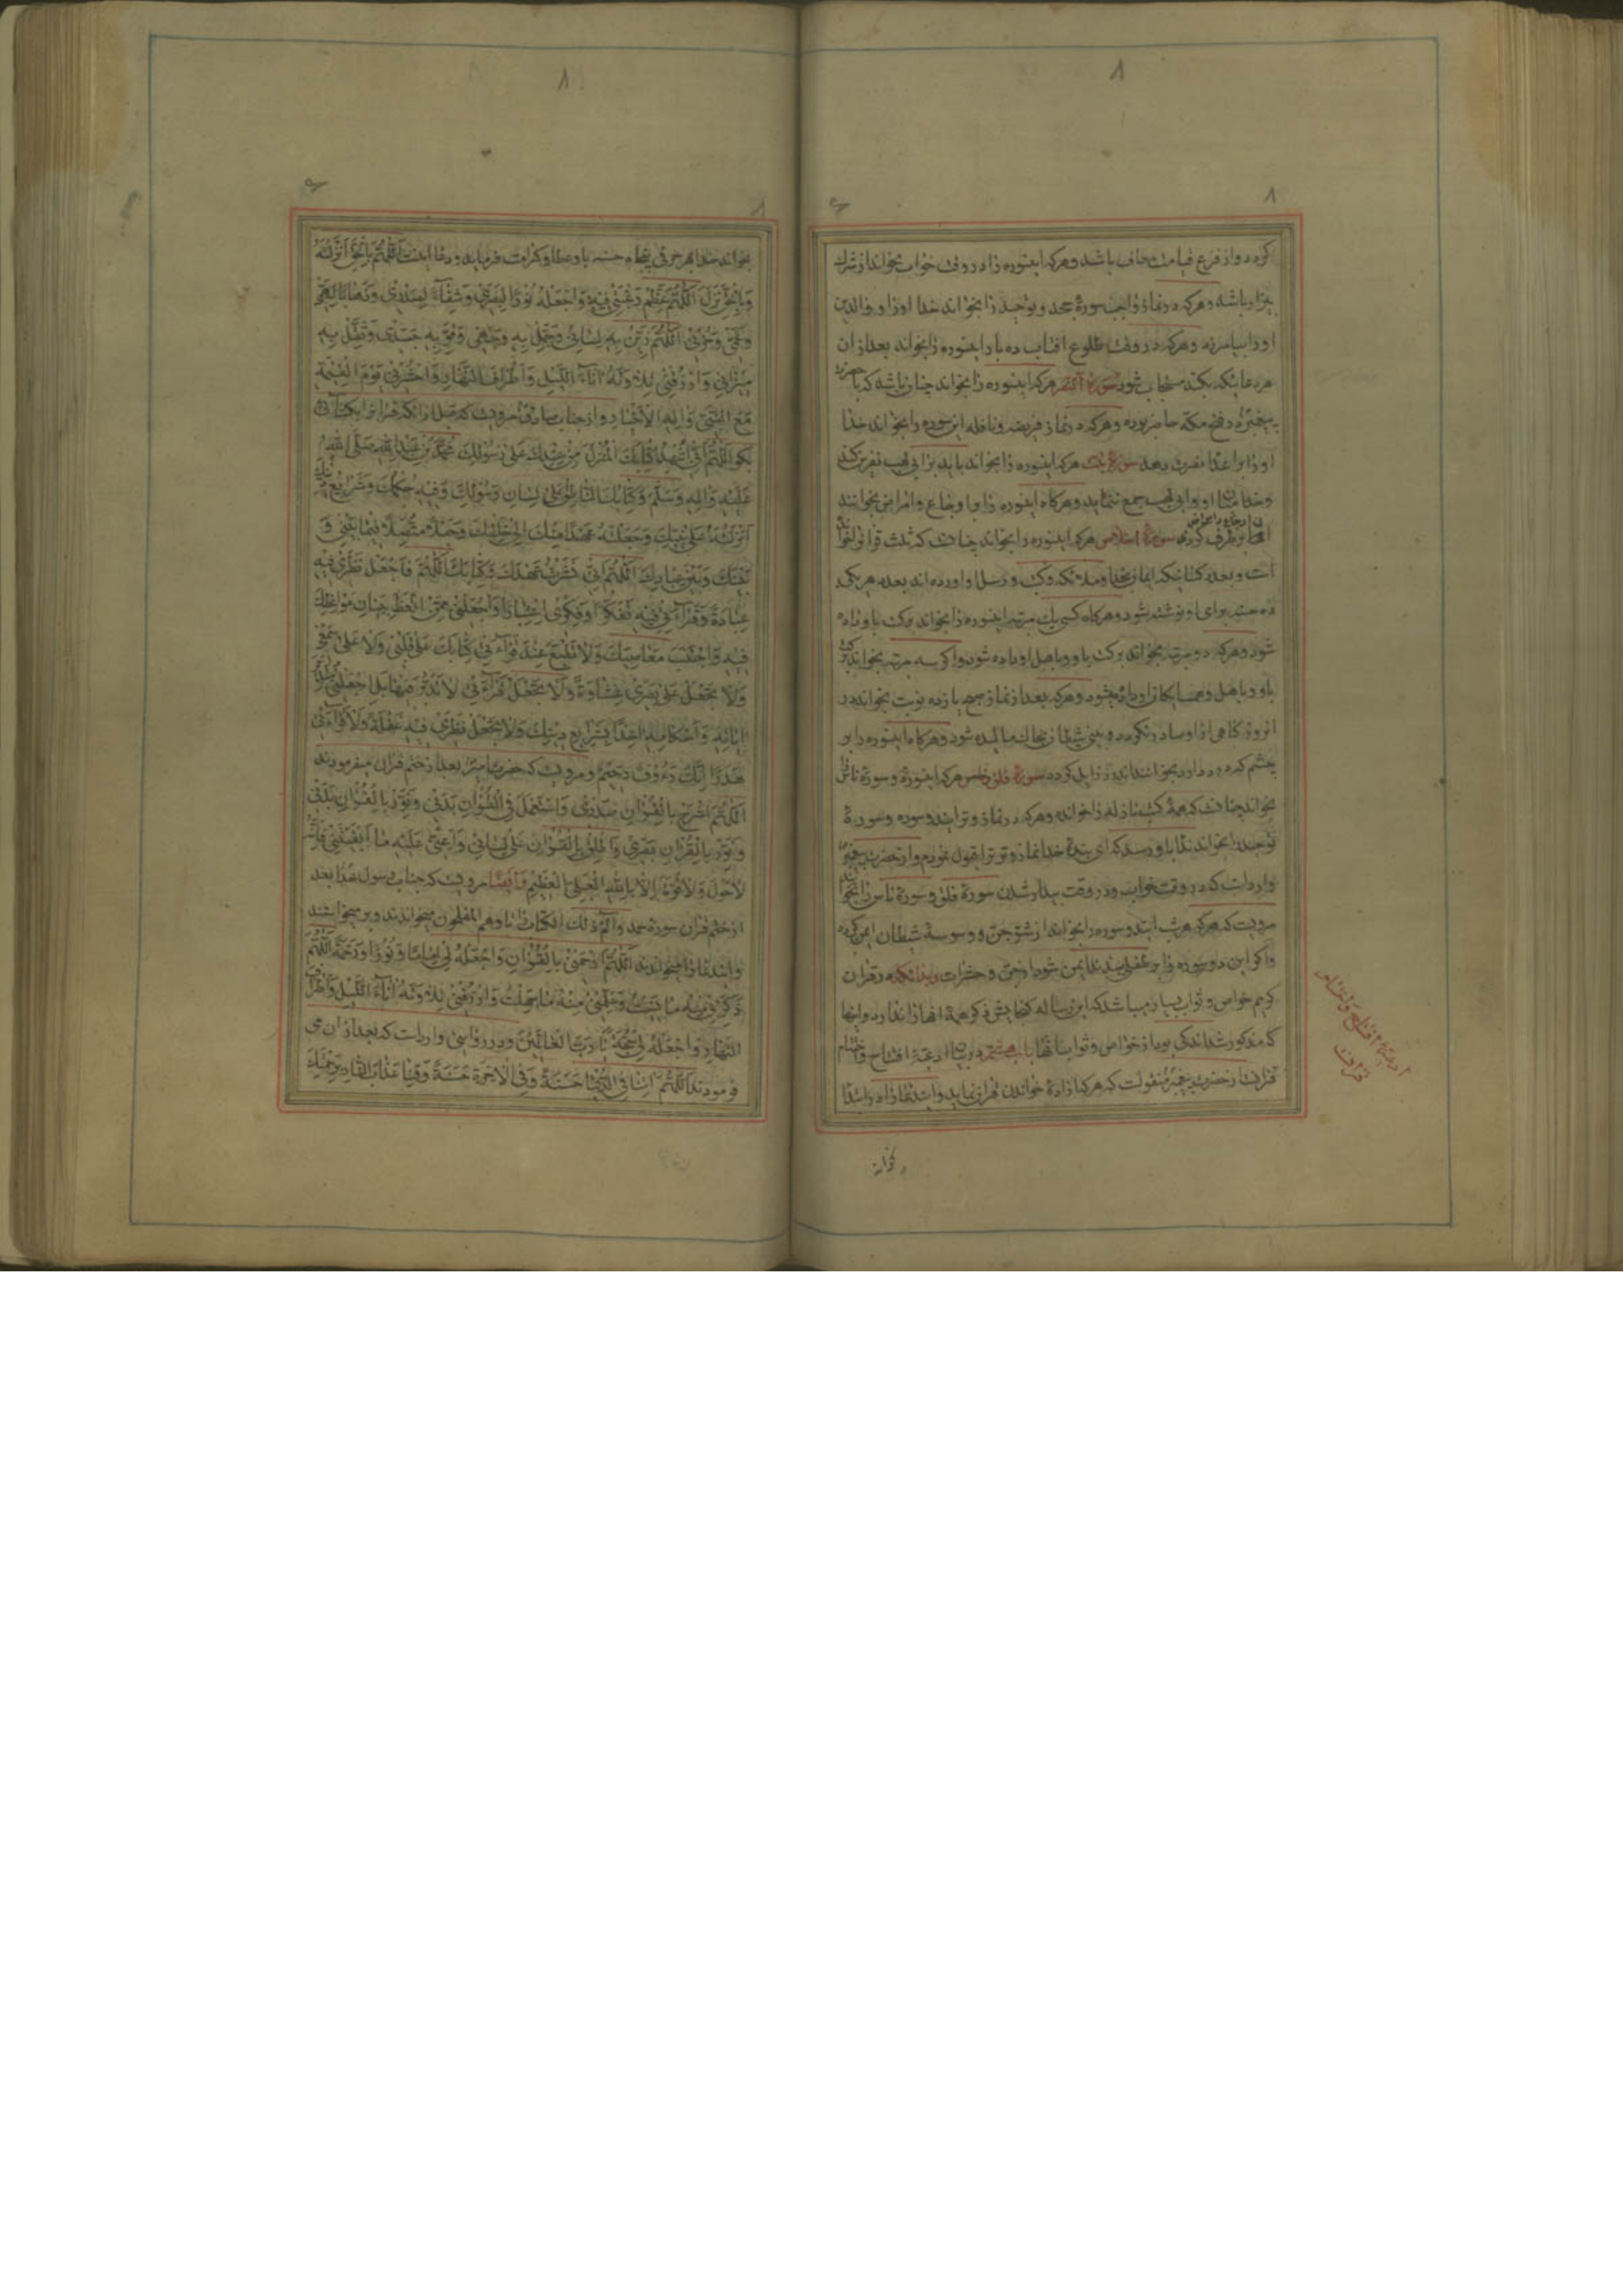 ۸
کردد و از فزع قیامت معاف باشد و هرکه اینسوره را در وقت خواب بخواند از شرک
بیزار باشد و هرکه در نماز واجب سورهٔ جحد و توحید را بخواند خدا او را و والدین
او را بیامرزد و هرکه در وقت طلوع افتاب ده بار اینسوره را بخواند بعد از ان
هر دعائیکه بکند مستجاب شود سورهٔ النصر هرکه اینسوره را بخواند چنان باشد که با حضرت
پیغمبر در فتح مکه حاضر بوده و هرکه در نماز فریضه و نافله این سوره را بخواند خدا
او را بر اعدا نصرت دهد سورهٔ تبت هرکه اینسوره را بخواند باید بر ابی لهب نفرین کند
و خدا میان او و ابی لهب جمع ننماید و هرکاه اینسوره را بر اوجاع و امراض بخوانند
سورهٔ اخلاص هرکه اینسوره را بخواند چنانست که ثلث قرانرا
است و بعدد کسانیکه ایمان بخدا و ملائکه و کتب و رسل او اورده اند بعدد هر یکی
ده حسنه برای او نوشته شود و هرکاه کسی یک مرتبه اینسوره را بخواند برکت باو داده
شود و هرکه دو مرتبه بخواند برکت باو و باهل او داده شود و اکر سه مرتبه بخواند برکت
باو و باهل و همسایکان او داده میشود و هرکه بعد از نماز صبح یازده نوبت بخواند در
انروز کناهی ازو صادر نکردد و بینی شیطان بخاک مالیده شود و هرکاه اینسوره را بر
چشم که درد دارد بخوانند درد زایل کردد سورهٔ فلق و ناس هرکه اینسوره و سورهٔ ناس را
بخواند چنانست که همهٔ کتب نازله را خوانده و هرکه در نماز وتر ایندو سوره و سورهٔ
توحید را بخواند ندا باو رسد که ای بندهٔ خدا نماز وتر ترا قبول نمودم و از حضرت پیغمبر
وارد است که در وقت خواب و در وقت بیدار شدن سورهٔ فلق و سورهٔ ناس را بخوانند
مرویست که هرکه هر شب ایندو سوره را بخواند از شر جن و وسوسهٔ شیطان ایمن کردد
و اکر این دو سوره را بر طفلی بندند ایمن شود از جن و حشرات و بدانکه در قران
کریم خواص و ثواب بسیار میباشد که این رساله کنجایش ذکر همهٔ انها را ندارد و اینها
که مذکور شد اندکی بود از خواص و ثواب انها باب هشتم در بیان ادعیهٔ افتتاح و اختتام
قرانست از حضرت پیغمبر منقولست که هرکه ارادهٔ خواندن قران نماید و ایندعا را در ابتدا
بخواند
ادعیهٔ افتتاح و اختتام
قرانست
۸
بخواند خدا بهر حرفی پنجاه حسنه باو عطا و کرامت فرماید و دعا اینست اَللّٰهُمَّ بِالْحَقِّ اَنْزَلْتَهُ
وَبِالْحَقِّ نَزَلَ اَللّٰهُمَّ عَظِّمْ رَغْبَتِیْ فِیْهِ وَاجْعَلْهُ نُوْرًا لِبَصَرِیْ وَشِفَآءً لِصَدْرِیْ وَذَهَابًا لِهَمِّیْ
وَغَمِّیْ وَحُزْنِیْ اَللّٰهُمَّ زَیِّنْ بِهِ لِسَانِیْ وَجَمِّلْ بِهِ وَجْهِیْ وَقَوِّ بِهِ جَسَدِیْ وَثَقِّلْ بِهِ
مِیْزَانِیْ وَارْزُقْنِیْ تِلَاوَتَهُ اٰنَآءَ اللَّیْلِ وَاَطْرَافَ النَّهَارِ وَاحْشُرْنِیْ یَوْمَ الْقِیٰمَةِ
مَعَ النَّبِیِّ وَاٰلِهِ الْاَخْیَارِ و از جناب صادق مرویست که قبل از انکه قران را بکشائی
بکو اَللّٰهُمَّ اِنِّیْ اَشْهَدُ اَنَّ هٰذَا کِتَابُكَ الْمُنْزَلُ مِنْ عِنْدِكَ عَلٰی رَسُوْلِكَ مُحَمَّدِ بْنِ عَبْدِ اللهِ صَلَّی اللهُ
عَلَیْهِ وَاٰلِهِ وَسَلَّمَ وَکِتَابُكَ النَّاطِقُ عَلٰی لِسَانِ رَسُوْلِكَ وَفِیْهِ حُکْمُكَ وَشَرَایِعُ دِیْنِكَ
اَنْزَلْتَهُ عَلٰی نَبِیِّكَ وَجَعَلْتَهُ عَهْدًا مِنْكَ اِلٰی خَلْقِكَ وَحَبْلًا مُتَّصِلًا فِیْمَا بَیْنَكَ وَ
بَیْنَ عِبَادِكَ اَللّٰهُمَّ اِنِّیْ نَشَرْتُ عَهْدَكَ وَکِتَابَكَ اَللّٰهُمَّ فَاجْعَلْ نَظَرِیْ فِیْهِ
عِبَادَةً وَقِرَآءَتِیْ فِیْهِ تَفَکُّرًا وَفِکْرِیْ اِعْتِبَارًا وَاجْعَلْنِیْ مِمَّنِ اتَّعَظَ بِبَیَانِ مَوَاعِظِكَ
فِیْهِ وَاجْتَنَبَ مَعَاصِیَكَ وَلَا تَطْبَعْ عِنْدَ قِرَآءَتِیْ کِتَابَكَ عَلٰی قَلْبِیْ وَلَا عَلٰی سَمْعِیْ
وَلَا تَجْعَلْ عَلٰی بَصَرِیْ غِشَاوَةً وَلَا تَجْعَلْ قِرَآءَتِیْ قِرَآءَةً لَا تَدَبُّرَ فِیْهَا بَلِ اجْعَلْنِیْ اَتَدَبَّرُ
اٰیَاتِهِ وَاَحْکَامَهُ اٰخِذًا بِشَرَایِعِ دِیْنِكَ وَلَا تَجْعَلْ نَظَرِیْ فِیْهِ غَفْلَةً وَلَا قِرَآءَتِیْ
هَذَرًا اِنَّكَ رَءُوْفٌ رَحِیْمٌ و مرویست که حضرت امیر بعد از ختم قران میفرمودند
اَللّٰهُمَّ اشْرَحْ بِالْقُرْاٰنِ صَدْرِیْ وَاسْتَعْمِلْ بِالْقُرْاٰنِ بَدَنِیْ وَنَوِّرْ بِالْقُرْاٰنِ
بَصَرِیْ وَاَطْلِقْ بِالْقُرْاٰنِ لِسَانِیْ وَاَعِنِّیْ عَلَیْهِ مَا اَبْقَیْتَنِیْ فَاِنَّهُ
لَا حَوْلَ وَلَا قُوَّةَ اِلَّا بِاللهِ الْعَلِیِّ الْعَظِیْمِ وَاَیْضًا مرویست که جناب رسول خدا بعد
از ختم قران سورهٔ حمد و الم ذلك الکتاب را تا و هم المفلحون میخواندند و بر میخواستند
و ایندعا را میخواندند اَللّٰهُمَّ ارْحَمْنِیْ بِالْقُرْاٰنِ وَاجْعَلْهُ لِیْ اِمَامًا وَنُوْرًا وَرَحْمَةً اَللّٰهُمَّ
ذَکِّرْنِیْ مِنْهُ مَا نَسِیْتُ وَعَلِّمْنِیْ مِنْهُ مَا جَهِلْتُ وَارْزُقْنِیْ تِلَاوَتَهُ اٰنَآءَ اللَّیْلِ وَاَطْرَافَ
النَّهَارِ وَاجْعَلْهُ لِیْ حُجَّةً یَا رَبَّ الْعَالَمِیْنَ و در روایتی وارد است که بعد از ان می
فرمودند اَللّٰهُمَّ اٰتِنَا فِی الدُّنْیَا حَسَنَةً وَفِی الْاٰخِرَةِ حَسَنَةً وَقِنَا عَذَابَ النَّارِ بِرَحْمَتِكَ